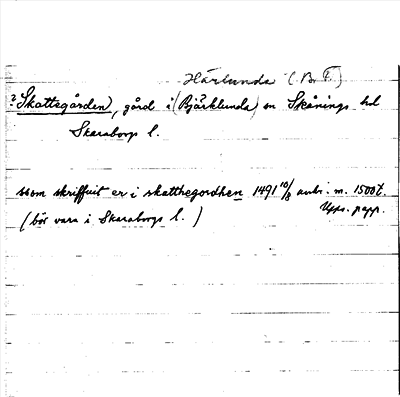 Härlunda (B. F.)
? Skattegården, gård i (Bjärklunda) sn Skånings hd
Skaraborgs l.
ssom skriffuit er i skatthegordhen 1491 10/8 avskr. m. 1500 t.
(bör vara i Skaraborgs l. ) Upps. papp.